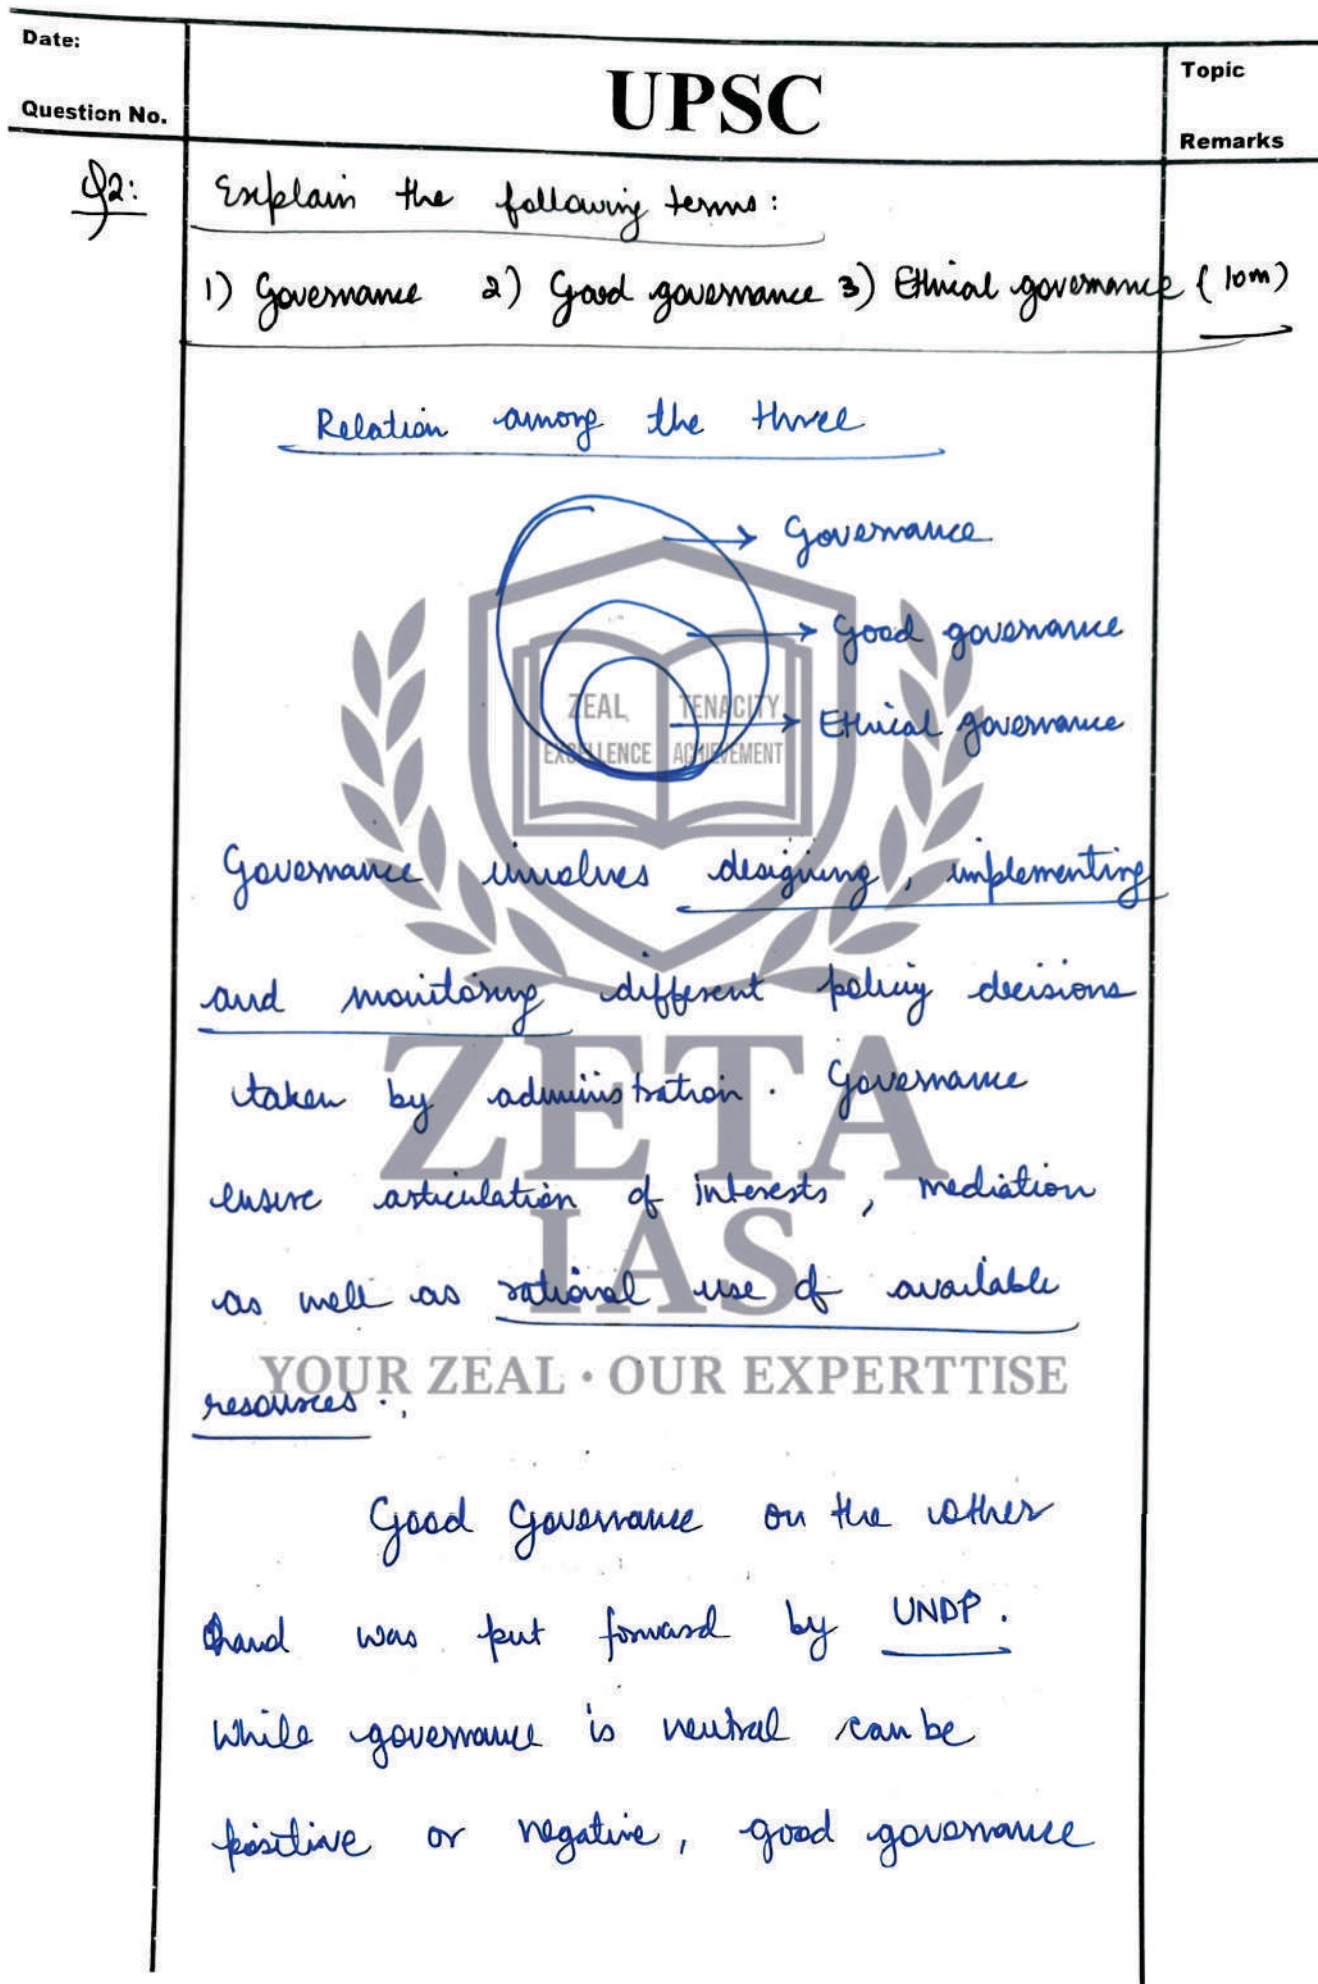 Date:
Question No.
UPSC
Topic
Remarks
Q2:
Explain the following terms:
1) Governance 2) Good governance 3) Ethical governance (10m)
Relation among the three
Governance
Good governance
Ethical governance
ZEAL TENACITY
EXCELLENCE ACHIEVEMENT
Governance involves designing, implementing
and monitoring different policy decisions
taken by administration. Governance
ensure articulation of interests, mediation
as well as rational use of available
resources.
ZETA
IAS
YOUR ZEAL · OUR EXPERTTISE
Good Governance on the other
hand was put forward by UNDP.
While governance is neutral can be
positive or negative, good governance